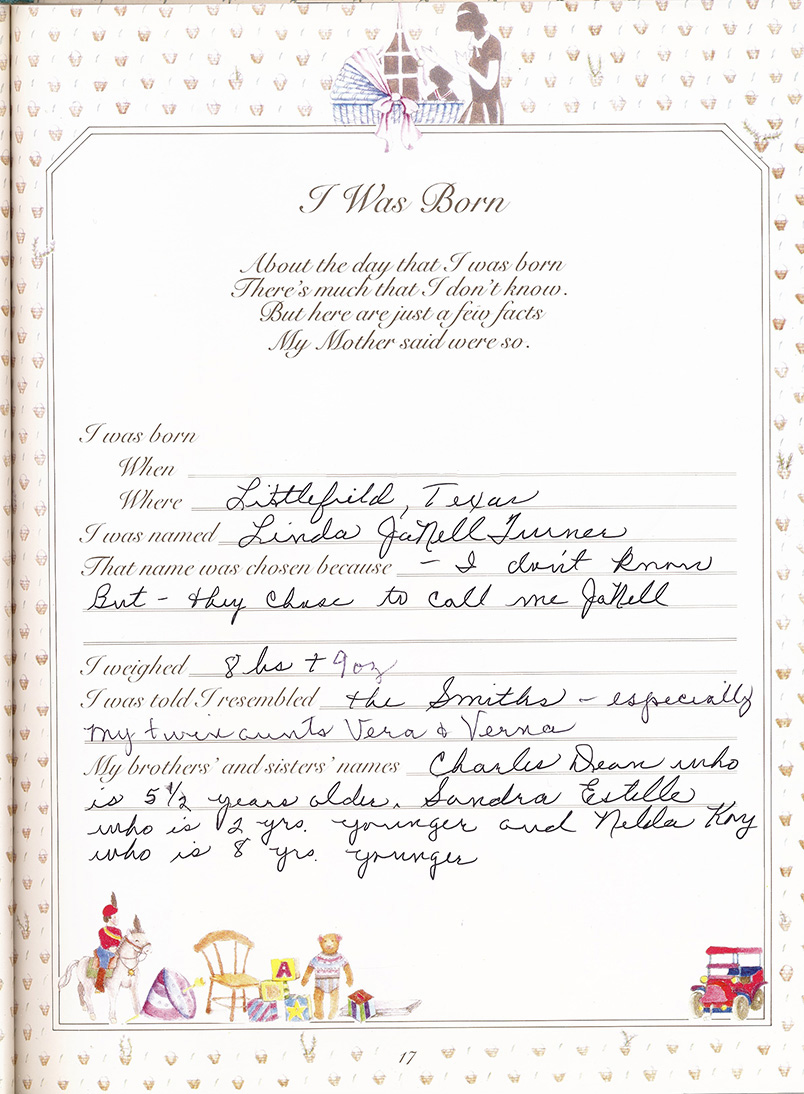 I Was Born
About the day that I was born
There's much that I don't know.
But here are just a few facts
My Mother said were so.
I was born
When
Where Littlefield, Texas
I was named Linda JaNell Turner
That name was chosen because - I don't know
But - they chose to call me JaNell
I weighed 8 lbs + 9oz
I was told I resembled the Smiths - especially
my twin aunts Vera & Verna
My brothers' and sisters' names Charles Dean who
is 5 1/2 years older, Sandra Estelle
who is 2 yrs. younger and Nelda Kay
who is 8 yrs. younger
A
17